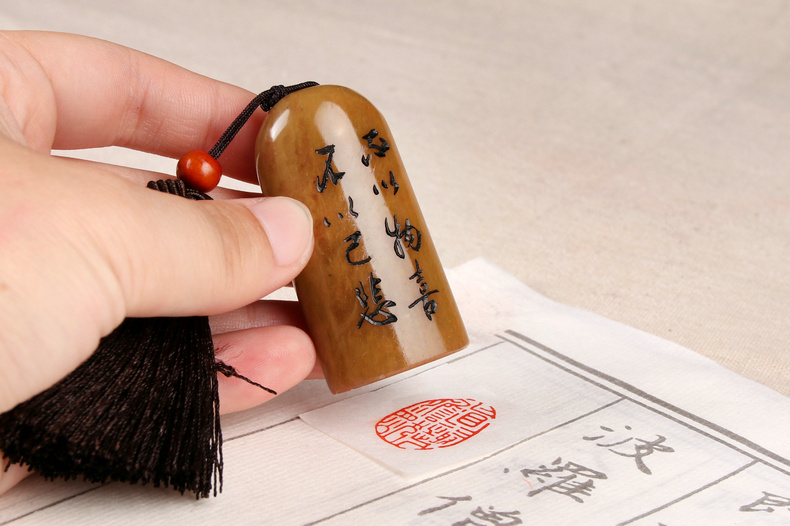 不以物喜
不以己悲
即
波羅僧